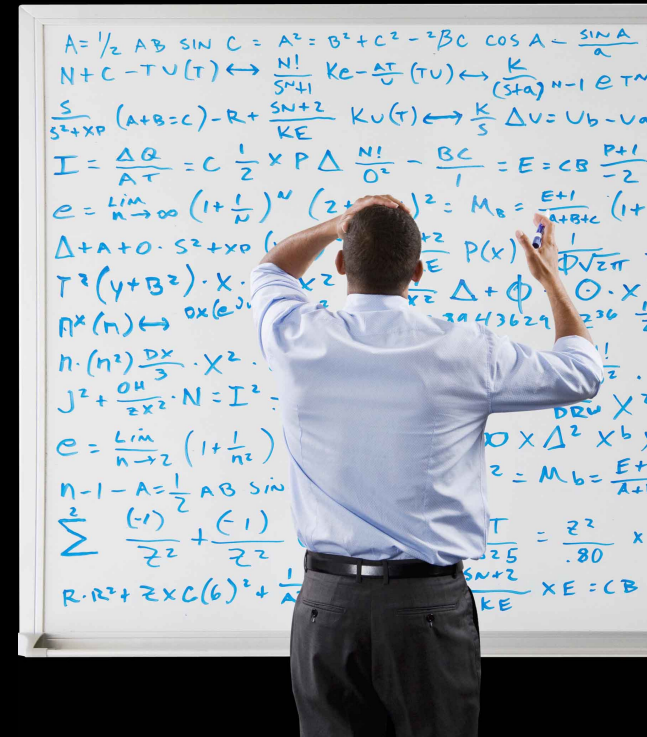 A = 1/2 AB SIN C = A² = B² + C² - ²BC COS A - SIN A/a
N + C - TU(T) ↔ N!/S^N+1 Ke - AT/U (TU) ↔ K/(S+a)^N-1 e TN
S/S²+XP (A+B=C) - R + SN+2/KE KU(T) ↔ K/S ΔU = Ub - Ua
I = ΔQ/AT = C 1/2 × P Δ N!/O² - BC/1 = E = CB P+1/-2
e = Lim n→∞ (1 + 1/N)^N (2+ )² = M_B = E+1/A+B+C (1+
Δ + A + O · S² + XP ( +2/E P(X) 1/Φ√2π
T²(y+B²) · X · X² X² Δ + Φ O · X
n^x(n) ↔ 0x(e^JU 3943629 2^36
n · (n²) DX/3 · X² ·
J² + OH/ZX² · N = I² = DRW X²
e = Lim n→2 (1 + 1/n²) 0 X Δ² X^b
n - 1 - A = 1/2 AB SIN ² = Mb = E+/A+
Σ² (-1)/Z² + (-1)/Z² T/525 = Z²/.80 X
R · R² + Z X C(6)² + 1/A SN+2/KE X E = CB